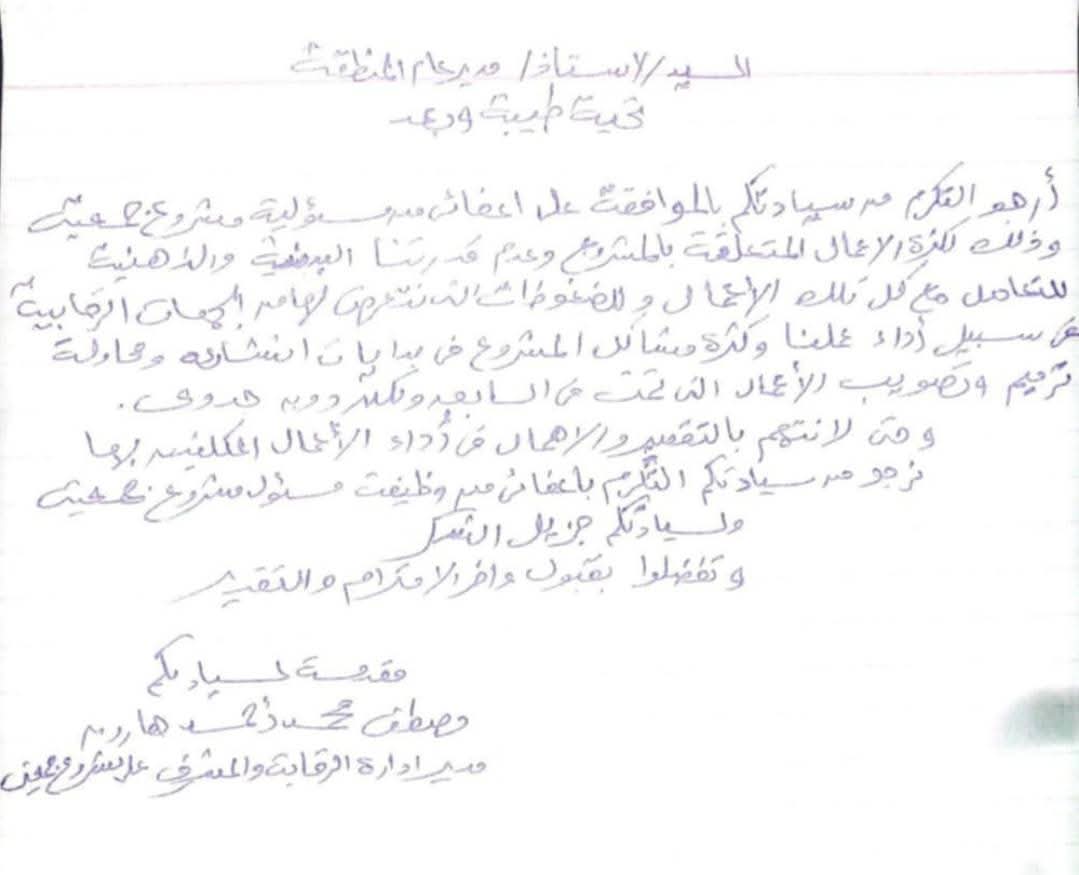 السيد/الاستاذ/ مدير عام المنطقة
تحية طيبة وبعد
أرجو التكرم من سيادتكم بالموافقة على اعفائى من مسئولية مشروع جمعية
وذلك لكثرة الاعمال المتعلقة بالمشروع وعدم قدرتنا البدنية والذهنية
للتعامل مع كل تلك الأعمال والضغوطات التى نتعرض لها من الجهات الرقابية
فى سبيل أداء عملنا وكثرة مشاكل المشروع فى بدايات انشائه ومحاولة
ترميم وتصويب الأعمال التى تمت فى السابق ولكن دون جدوى.
وحتى لانتهم بالتقصير والاهمال فى أداء الأعمال المكلفين بها
نرجو من سيادتكم التكرم باعفائى من وظيفة مسئول مشروع جمعية
ولسيادتكم جزيل الشكر
وتفضلوا بقبول وافر الاحترام والتقدير
مقدمة لسيادتكم
مصطفى محمد أحمد هارون
مدير ادارة الرقابة والمشرف على مشروع جمعيتى